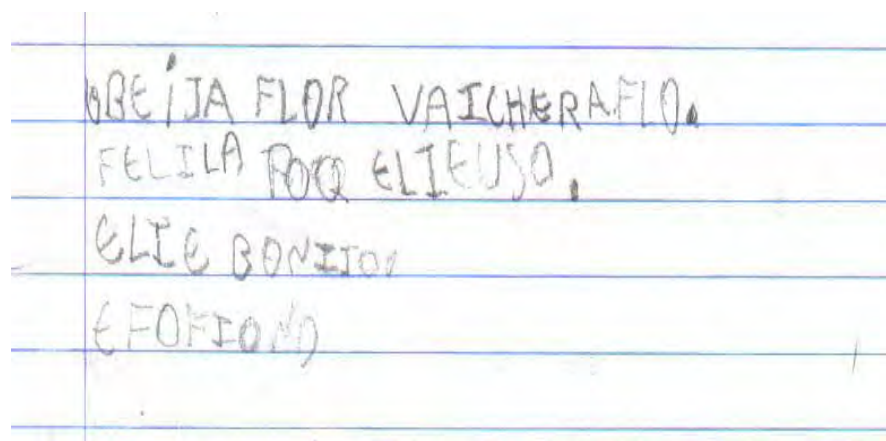 OBEIJA FLOR VAICHERAFLO.
FELILA POQ ELIEUSO.
ELIE BONITOI
EFOFIONO